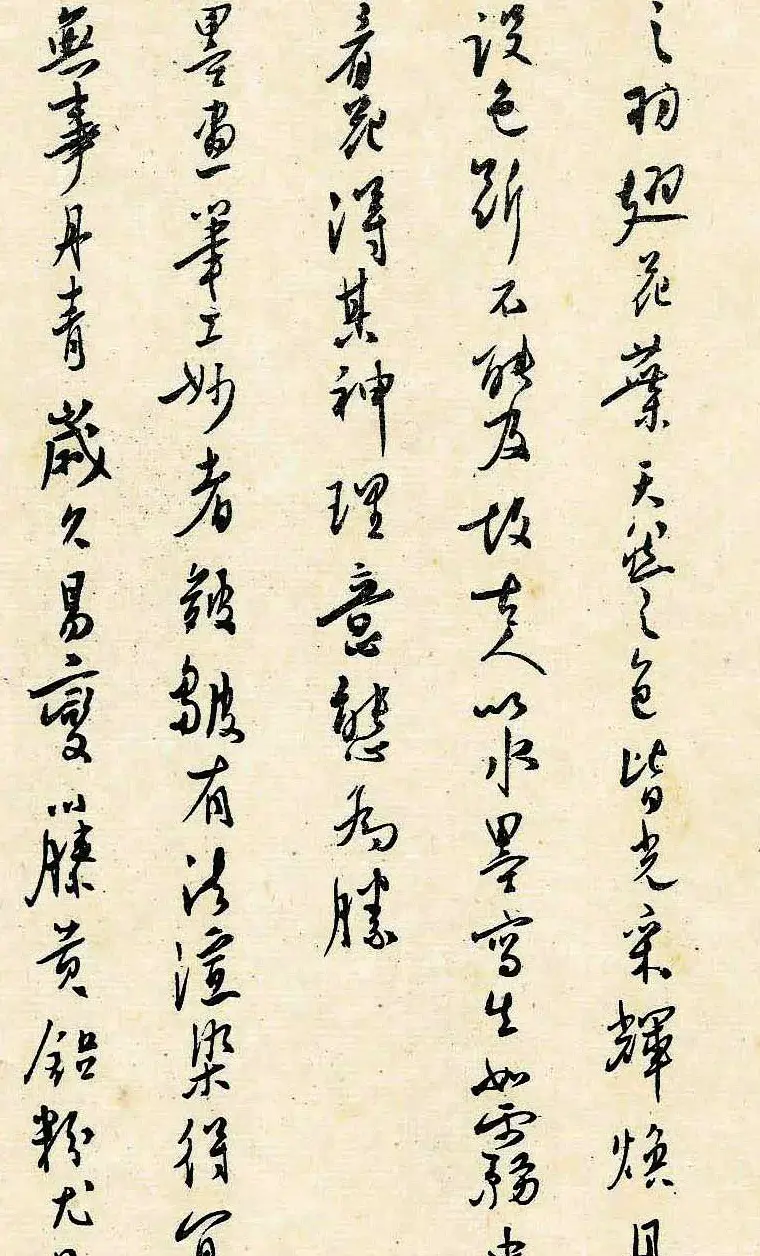 之羽翅花葉天然之色皆光采輝煥
設色斷不能及故古人以水墨寫生如雲霧中
看花得其神理意態為勝
墨畫筆工妙者皴皺有法渲染得宜
無事丹青歲久易變以藤黄鉛粉尤